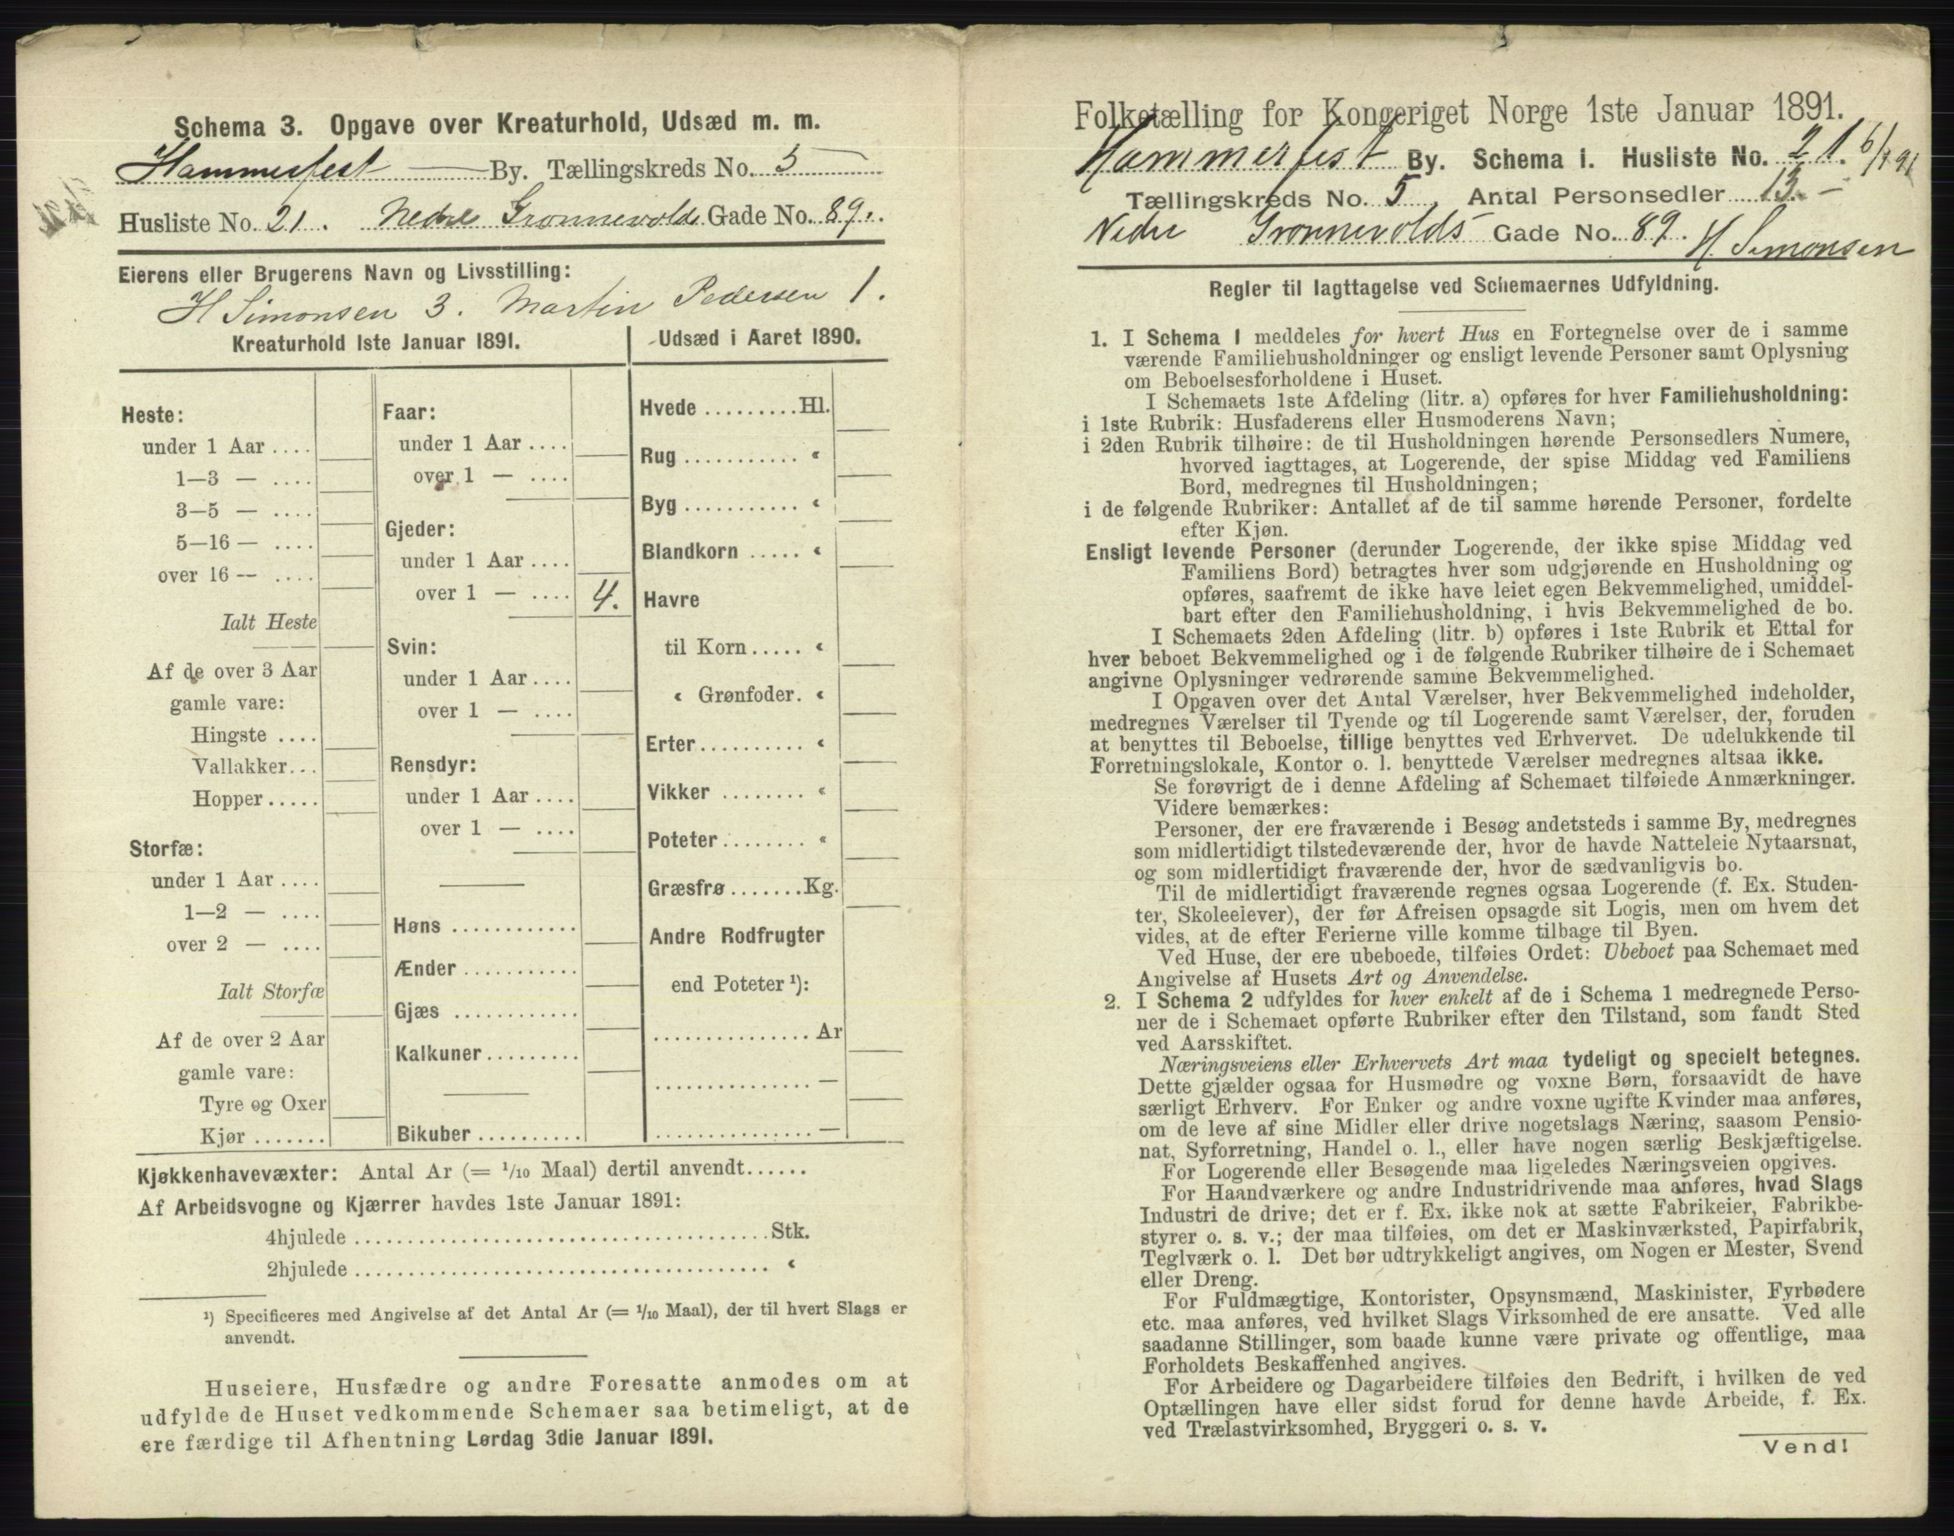 Schema 3. Opgave over Kreaturhold, Udsæd m. m.
Hammerfest By. Tællingskreds No. 5
Husliste No. 21. Nedre Grønnevolds Gade No. 89.
Eierens eller Brugerens Navn og Livsstilling:
H Simonsen 3. Martin Pedersen 1.
Kreaturhold 1ste Januar 1891.
Heste:
under 1 Aar ....
1—3 — ....
3—5 — ....
5—16 — ....
over 16 — ....
Ialt Heste
Af de over 3 Aar
gamle vare:
Hingste ....
Vallakker...
Hopper .....
Storfæ:
under 1 Aar ....
1—2 — ....
over 2 — ....
Ialt Storfæ
Af de over 2 Aar
gamle vare:
Tyre og Oxer
Kjør .......
Faar:
under 1 Aar ....
over 1 — ....
Gjeder:
under 1 Aar ....
over 1 — .... 4.
Svin:
under 1 Aar ....
over 1 — ....
Rensdyr:
under 1 Aar ....
over 1 — ....
Høns ............
Ænder ...........
Gjæs ............
Kalkuner .........
Bikuber ..........
Udsæd i Aaret 1890.
Hvede ......... Hl.
Rug ........... «
Byg ........... «
Blandkorn ..... «
Havre
til Korn ..... «
« Grønfoder. «
Erter .......... «
Vikker ........ «
Poteter ........ «
Græsfrø ....... Kg.
Andre Rodfrugter
end Poteter ¹):
............... Ar
............... —
............... —
Kjøkkenhavevæxter: Antal Ar (= 1/10 Maal) dertil anvendt......
Af Arbeidsvogne og Kjærrer havdes 1ste Januar 1891:
4hjulede ...................................... Stk.
2hjulede ...................................... «
¹) Specificeres med Angivelse af det Antal Ar (= 1/10 Maal), der til hvert Slags er
anvendt.
Huseiere, Husfædre og andre Foresatte anmodes om at
udfylde de Huset vedkommende Schemaer saa betimeligt, at de
ere færdige til Afhentning Lørdag 3die Januar 1891.
Folketælling for Kongeriget Norge 1ste Januar 1891.
Hammerfest By. Schema 1. Husliste No. 21. 6/1 91
Tællingskreds No. 5. Antal Personsedler 13.
Nedre Grønnevolds Gade No. 89 H. Simonsen
Regler til Iagttagelse ved Schemaernes Udfyldning.
1. I Schema 1 meddeles for hvert Hus en Fortegnelse over de i samme
værende Familiehusholdninger og ensligt levende Personer samt Oplysning
om Beboelsesforholdene i Huset.
I Schemaets 1ste Afdeling (litr. a) opføres for hver Familiehusholdning:
i 1ste Rubrik: Husfaderens eller Husmoderens Navn;
i 2den Rubrik tilhøire: de til Husholdningen hørende Personsedlers Numere,
hvorved iagttages, at Logerende, der spise Middag ved Familiens
Bord, medregnes til Husholdningen;
i de følgende Rubriker: Antallet af de til samme hørende Personer, fordelte
efter Kjøn.
Ensligt levende Personer (derunder Logerende, der ikke spise Middag ved
Familiens Bord) betragtes hver som udgjørende en Husholdning og
opføres, saafremt de ikke have leiet egen Bekvemmelighed, umiddel-
bart efter den Familiehusholdning, i hvis Bekvemmelighed de bo.
I Schemaets 2den Afdeling (litr. b) opføres i 1ste Rubrik et Ettal for
hver beboet Bekvemmelighed og i de følgende Rubriker tilhøire de i Schemaet
angivne Oplysninger vedrørende samme Bekvemmelighed.
I Opgaven over det Antal Værelser, hver Bekvemmelighed indeholder,
medregnes Værelser til Tyende og til Logerende samt Værelser, der, foruden
at benyttes til Beboelse, tillige benyttes ved Erhvervet. De udelukkende til
Forretningslokale, Kontor o. l. benyttede Værelser medregnes altsaa ikke.
Se forøvrigt de i denne Afdeling af Schemaet tilføiede Anmærkninger.
Videre bemærkes:
Personer, der ere fraværende i Besøg andetsteds i samme By, medregnes
som midlertidigt tilstedeværende der, hvor de havde Natteleie Nytaarsnat,
og som midlertidigt fraværende der, hvor de sædvanligvis bo.
Til de midlertidigt fraværende regnes ogsaa Logerende (f. Ex. Studen-
ter, Skoleelever), der før Afreisen opsagde sit Logis, men om hvem det
vides, at de efter Ferierne ville komme tilbage til Byen.
Ved Huse, der ere ubeboede, tilføies Ordet: Ubeboet paa Schemaet med
Angivelse af Husets Art og Anvendelse.
2. I Schema 2 udfyldes for hver enkelt af de i Schema 1 medregnede Perso-
ner de i Schemaet opførte Rubriker efter den Tilstand, som fandt Sted
ved Aarsskiftet.
Næringsveiens eller Erhvervets Art maa tydeligt og specielt betegnes.
Dette gjælder ogsaa for Husmødre og voxne Børn, forsaavidt de have
særligt Erhverv. For Enker og andre voxne ugifte Kvinder maa anføres,
om de leve af sine Midler eller drive nogetslags Næring, saasom Pensio-
nat, Syforretning, Handel o. l., eller have nogen særlig Beskjæftigelse.
For Logerende eller Besøgende maa ligeledes Næringsveien opgives.
For Haandværkere og andre Industridrivende maa anføres, hvad Slags
Industri de drive; det er f. Ex. ikke nok at sætte Fabrikeier, Fabrikbe-
styrer o. s. v.; der maa tilføies, om det er Maskinværksted, Papirfabrik,
Teglværk o. l. Det bør udtrykkeligt angives, om Nogen er Mester, Svend
eller Dreng.
For Fuldmægtige, Kontorister, Opsynsmænd, Maskinister, Fyrbødere
etc. maa anføres, ved hvilket Slags Virksomhed de ere ansatte. Ved alle
saadanne Stillinger, som baade kunne være private og offentlige, maa
Forholdets Beskaffenhed angives.
For Arbeidere og Dagarbeidere tilføies den Bedrift, i hvilken de ved
Optællingen have eller sidst forud for denne havde Arbeide, f. Ex.
ved Trælastvirksomhed, Bryggeri o. s. v.
Vend!